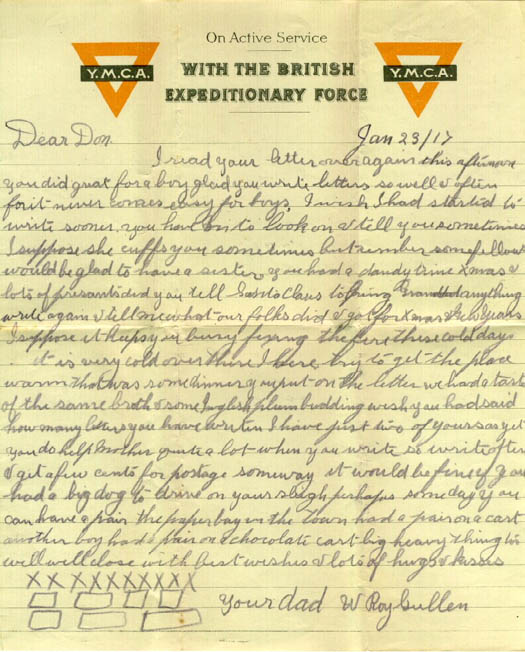 On Active Service
Y.M.C.A. WITH THE BRITISH Y.M.C.A.
EXPEDITIONARY FORCE
Dear Don. Jan 23/17
I read your letter over again this afternoon
you did great for a boy glad you write letters so well & often
for it never comes easy for boys, I wish I had started to
write sooner, you have to look on & tell you sometimes
I suppose she cuffs you sometimes but rember some fellows
would be glad to have a sister, you had a dandy time Xmas &
lots of presants did you tell Santa Claus to bring Grandad anything
write again & tell me what our folks did & got for Xmas & New Years
I suppose it keeps you busy fixing the fire these cold days
it is very cold over there I here try to get the place
warm that was some dinner you put on the letter we had a tast
of the same broth & some Inglesh plum budding wish you had said
how many letters you have writen I have just two of yours as yet
you do help Mother quite a lot when you write so write often
& get a few cents for postage someway it would be fine if you
had a big dog to drive on your sleigh perhaps some day you
can have a pair the paper boy in the town had a pair on a cart
another boy had a pair on a chocolate cart big heavy thing to
well will close with best wishes & lots of hugs & kisses
XXXXXXXXXX
Your dad W Roy Gullen